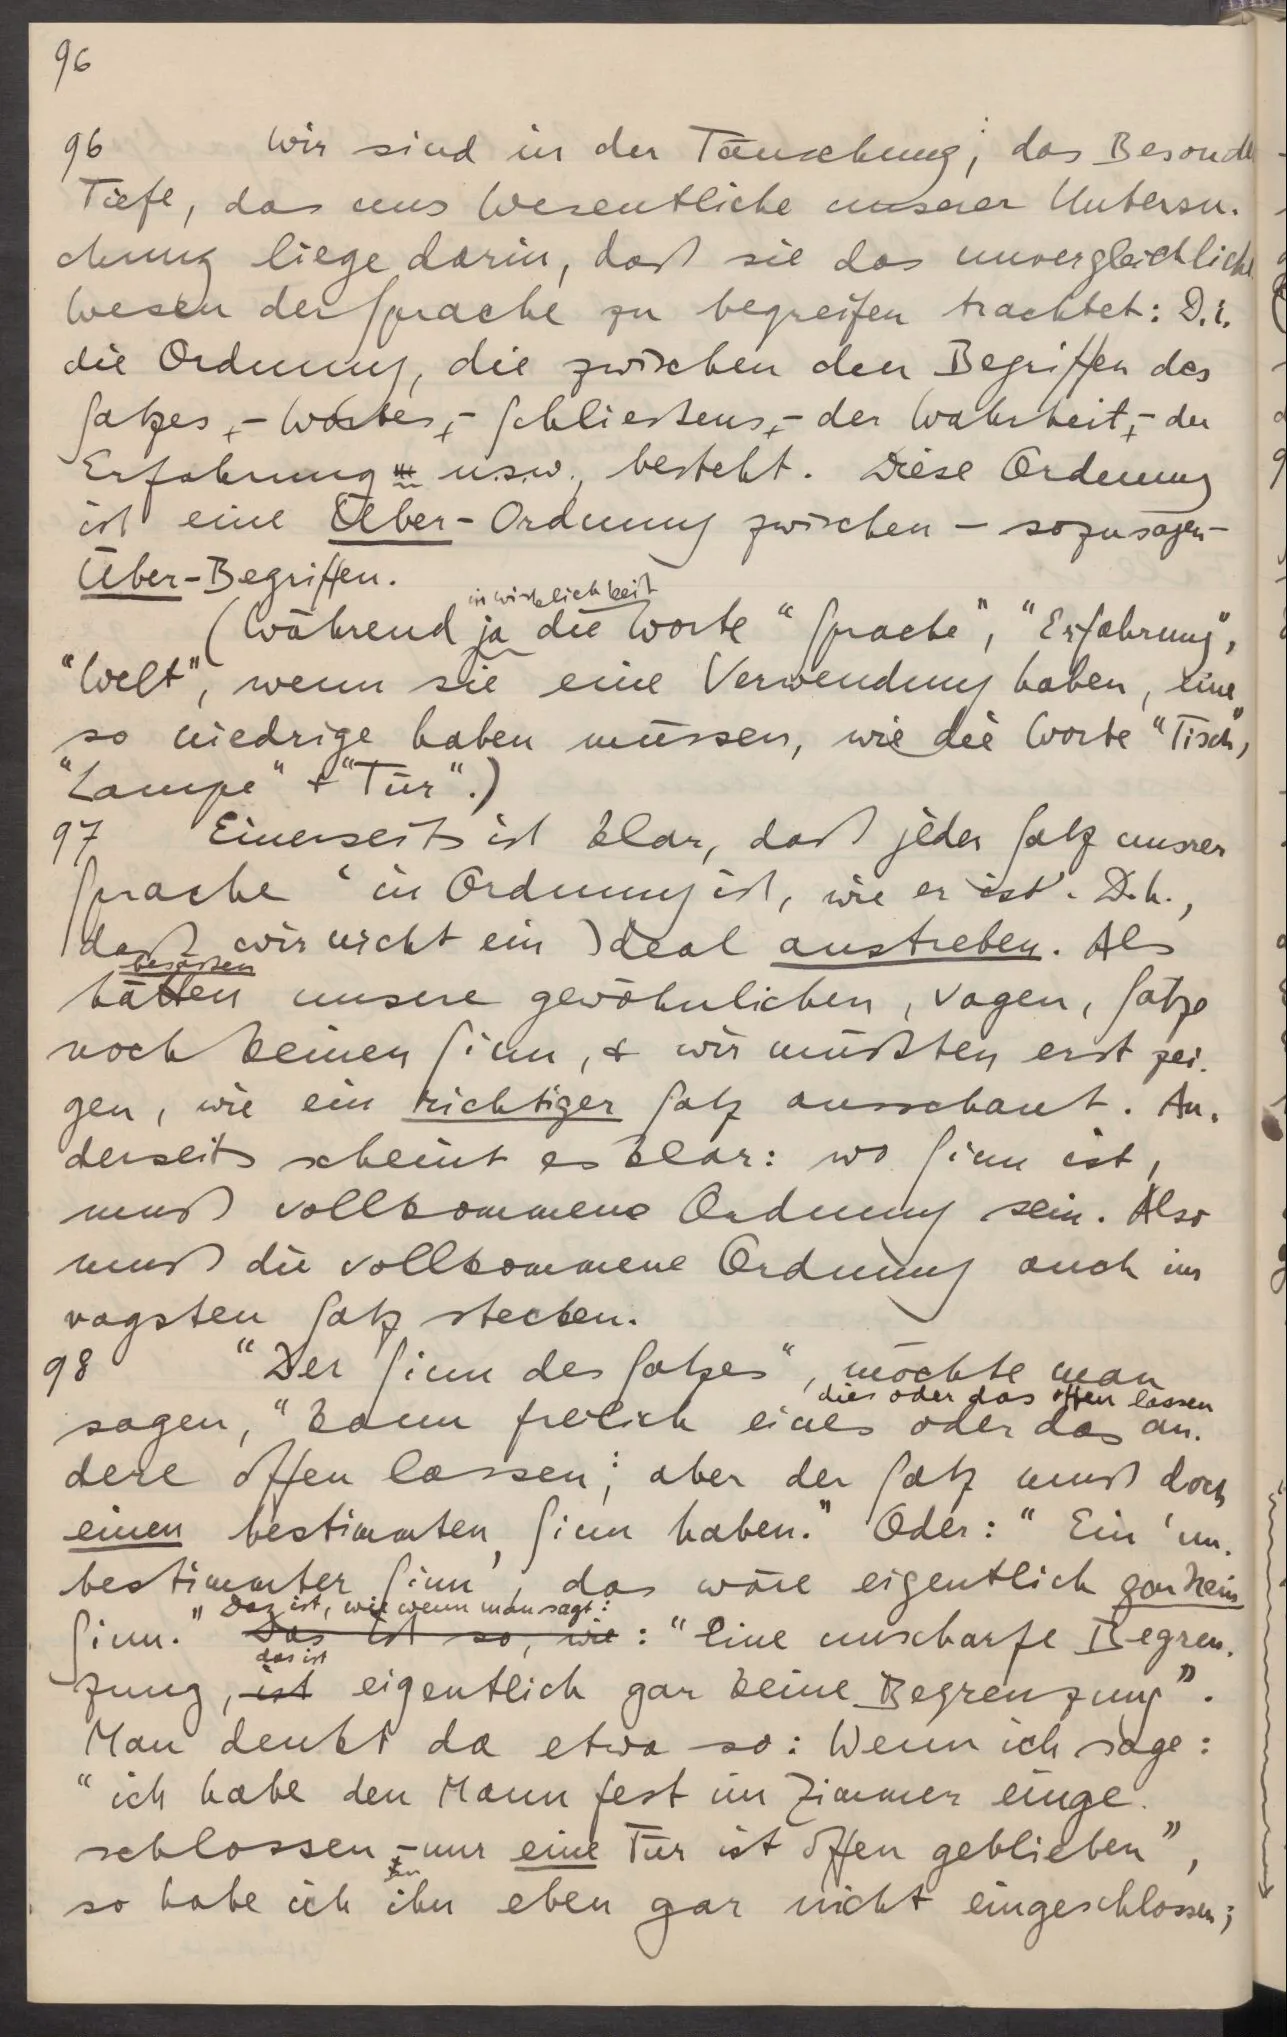 96
96 Wir sind in der Täuschung, das Besondere
Tiefe, das uns Wesentliche unserer Untersu-
chung liege darin, daß sie das unvergleichliche
Wesen der Sprache zu begreifen trachtet: D.i.
die Ordnung, die zwischen den Begriffen des
Satzes, – Wortes, – Schließens, – der Wahrheit, – der
Erfahrung u.s.w., besteht. Diese Ordnung
ist eine Über-Ordnung zwischen – sozusagen –
Über-Begriffen.
in Wirklichkeit
(Während ja die Worte "Sprache", "Erfahrung",
"Welt", wenn sie eine Verwendung haben, eine
so niedrige haben müssen, wie die Worte "Tisch",
"Lampe" + "Tür".)
97 Einerseits ist klar, daß jeder Satz unsrer
Sprache 'in Ordnung ist, wie er ist'. D.h.,
daß wir nicht ein Ideal anstreben. Als
besäßen
hätten unsere gewöhnlichen, vagen, Sätze
noch keinen Sinn, + wir müßten erst zei-
gen, wie ein richtiger Satz ausschaut. An-
derseits scheint es klar: wo Sinn ist,
muß vollkommene Ordnung sein. Also
muß die vollkommene Ordnung auch im
vagsten Satz stecken.
98 "Der Sinn des Satzes", möchte man
dies oder das offen lassen
sagen, "kann freilich eines oder das an-
dere offen lassen; aber der Satz muß doch
einen bestimmten Sinn haben." Oder: "Ein 'un-
bestimmter Sinn', das wäre eigentlich gar kein
Das ist, wie wenn man sagt:
Sinn." Das ist so, wie: "Eine unscharfe Begren-
das ist
zung, ist eigentlich gar keine Begrenzung".
Man denkt da etwa so: Wenn ich sage:
"ich habe den Mann fest im Zimmer einge-
schlossen – nur eine Tür ist offen geblieben",
so habe ich ihn eben gar nicht eingeschlossen;